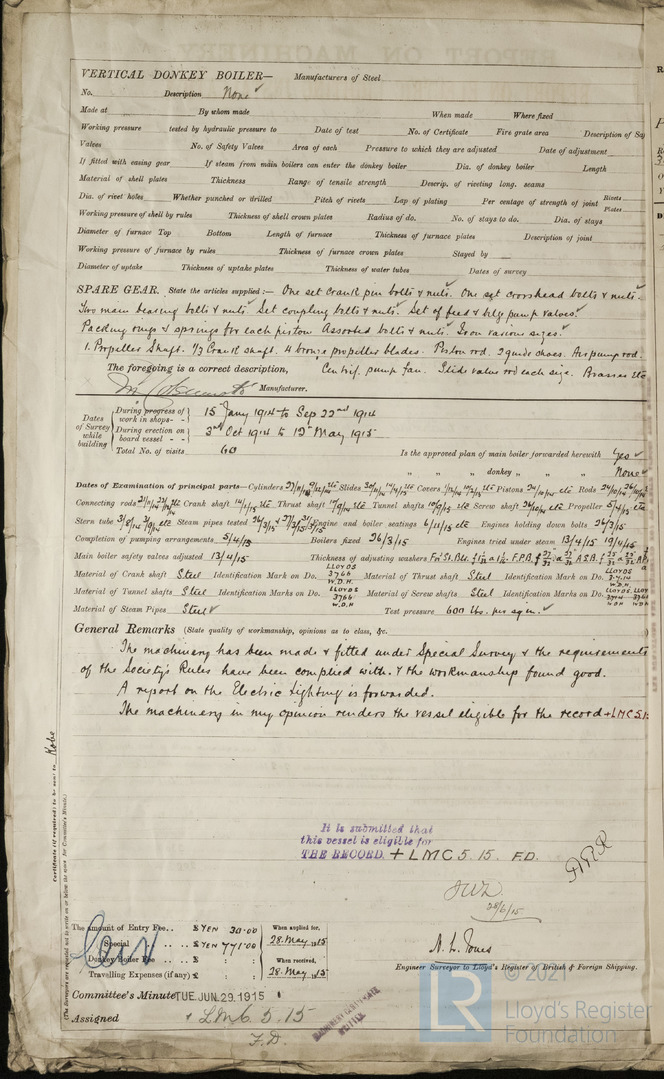 VERTICAL DONKEY BOILER— Manufacturers of Steel
No. Description None ✓
Made at By whom made When made Where fixed
Working pressure tested by hydraulic pressure to Date of test No. of Certificate Fire grate area Description of Saf
Valves No. of Safety Valves Area of each Pressure to which they are adjusted Date of adjustment
If fitted with easing gear If steam from main boilers can enter the donkey boiler Dia. of donkey boiler Length
Material of shell plates Thickness Range of tensile strength Descrip. of riveting long. seams
Dia. of rivet holes Whether punched or drilled Pitch of rivets Lap of plating Per centage of strength of joint Rivets Plates
Working pressure of shell by rules Thickness of shell crown plates Radius of do. No. of stays to do. Dia. of stays
Diameter of furnace Top Bottom Length of furnace Thickness of furnace plates Description of joint
Working pressure of furnace by rules Thickness of furnace crown plates Stayed by
Diameter of uptake Thickness of uptake plates Thickness of water tubes Dates of survey
SPARE GEAR. State the articles supplied:— One set Crank pin bolts & nuts. One set crosshead bolts & nuts.
Two main bearing bolts & nuts Set coupling bolts & nuts. Set of feed & bilge pump valves.
Packing rings & springs for each piston Assorted bolts & nuts. Iron various sizes.
1 Propeller Shaft. 1/3 Crank shaft. 4 bronze propeller blades. Piston rod. 2 guide shoes. Air pump rod.
The foregoing is a correct description, Centrif. pump fan. Slide valve rod each size. Brasses etc
Manufacturer.
Dates of Survey while building
During progress of work in shops - - 15 Jany 1914 to Sep 22nd 1914
During erection on board vessel - - 3rd Oct 1914 to 12 May 1915
Total No. of visits 60 Is the approved plan of main boiler forwarded herewith Yes ✓
" " " donkey " " None ✓
Dates of Examination of principal parts—Cylinders Slides Covers Pistons Rods
Connecting rods Crank shaft Thrust shaft Tunnel shafts Screw shaft Propeller 5/4/15 etc
Stern tube Steam pipes tested Engine and boiler seatings 6/11/15 etc Engines holding down bolts 26/3/15
Completion of pumping arrangements 5/4/15 Boilers fixed 26/3/15 Engines tried under steam 13/4/15 19/4/15
Main boiler safety valves adjusted 13/4/15 Thickness of adjusting washers
Material of Crank shaft Steel Identification Mark on Do. LLOYDS 3766 W.D.H. Material of Thrust shaft Steel Identification Mark on Do. LLOYDS W.D.H.
Material of Tunnel shafts Steel Identification Marks on Do. LLOYDS 3766 W.D.H Material of Screw shafts Steel Identification Marks on Do. LLOYDS
Material of Steam Pipes Steel ✓ Test pressure 600 lbs. per sq in. ✓
General Remarks (State quality of workmanship, opinions as to class, &c.
The machinery has been made & fitted under Special Survey & the requirements
of the Society's Rules have been complied with. & the workmanship found good.
A report on the Electric Lighting is forwarded.
The machinery in my opinion renders the vessel eligible for the record + LMC 5.1
Certificate (if required) to be sent to Kobe
(The Surveyors are requested not to write on or below the space for Committee's Minute.)
It is submitted that
this vessel is eligible for
THE RECORD. + LMC 5.15. F.D.
28/6/15
The amount of Entry Fee . . £ YEN 30.00 When applied for,
Special . . . . £ YEN 771.00 28. May 1915
Donkey Boiler Fee . . . £ : : When received,
Travelling Expenses (if any) £ : : 28. May 1915
Engineer Surveyor to Lloyd's Register of British & Foreign Shipping.
Committee's Minute TUE. JUN. 29. 1915
Assigned + LMC 5.15
F.D.
MACHINERY CERTIFICATE
WRITTEN
© 2021
LR
Lloyd's Register
Foundation